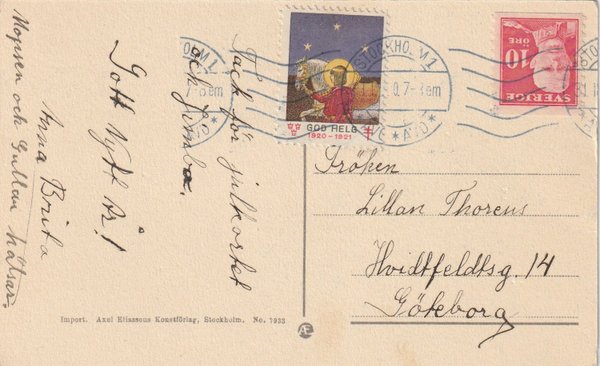 Tack för julkortet
och
Gott Nytt År!
Anna Brita
Mopsen och Gullan hälsar.
GOD HELG
1920 - 1921
STOCKHOLM 1
7-8 em
10
ÖRE
SVERIGE
Fröken
Lillan Thorens
Hvidtfeldtsg. 14
Göteborg
Import. Axel Eliassons Konstförlag, Stockholm. No. 7935
AE